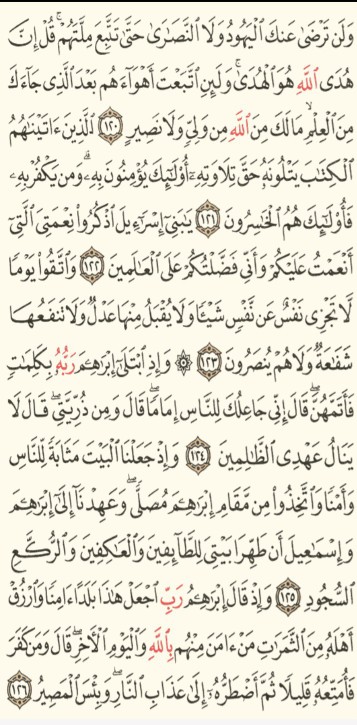 وَلَن تَرْضَىٰ عَنكَ ٱلْيَهُودُ وَلَا ٱلنَّصَـٰرَىٰ حَتَّىٰ تَتَّبِعَ مِلَّتَهُمْ ۗ قُلْ إِنَّ
هُدَى ٱللَّهِ هُوَ ٱلْهُدَىٰ ۗ وَلَئِنِ ٱتَّبَعْتَ أَهْوَآءَهُم بَعْدَ ٱلَّذِى جَآءَكَ
مِنَ ٱلْعِلْمِ ۙ مَا لَكَ مِنَ ٱللَّهِ مِن وَلِىٍّ وَلَا نَصِيرٍ ١٢٠ ٱلَّذِينَ ءَاتَيْنَـٰهُمُ
ٱلْكِتَـٰبَ يَتْلُونَهُۥ حَقَّ تِلَاوَتِهِۦٓ أُو۟لَـٰٓئِكَ يُؤْمِنُونَ بِهِۦ ۗ وَمَن يَكْفُرْ بِهِۦ
فَأُو۟لَـٰٓئِكَ هُمُ ٱلْخَـٰسِرُونَ ١٢١ يَـٰبَنِىٓ إِسْرَٰٓءِيلَ ٱذْكُرُوا۟ نِعْمَتِىَ ٱلَّتِىٓ
أَنْعَمْتُ عَلَيْكُمْ وَأَنِّى فَضَّلْتُكُمْ عَلَى ٱلْعَـٰلَمِينَ ١٢٢ وَٱتَّقُوا۟ يَوْمًا
لَّا تَجْزِى نَفْسٌ عَن نَّفْسٍ شَيْـًٔا وَلَا يُقْبَلُ مِنْهَا عَدْلٌ وَلَا تَنفَعُهَا
شَفَـٰعَةٌ وَلَا هُمْ يُنصَرُونَ ١٢٣ ۞ وَإِذِ ٱبْتَلَىٰٓ إِبْرَٰهِـۧمَ رَبُّهُۥ بِكَلِمَـٰتٍ
فَأَتَمَّهُنَّ ۖ قَالَ إِنِّى جَاعِلُكَ لِلنَّاسِ إِمَامًا ۖ قَالَ وَمِن ذُرِّيَّتِى ۖ قَالَ لَا
يَنَالُ عَهْدِى ٱلظَّـٰلِمِينَ ١٢٤ وَإِذْ جَعَلْنَا ٱلْبَيْتَ مَثَابَةً لِّلنَّاسِ
وَأَمْنًا وَٱتَّخِذُوا۟ مِن مَّقَامِ إِبْرَٰهِـۧمَ مُصَلًّى ۖ وَعَهِدْنَآ إِلَىٰٓ إِبْرَٰهِـۧمَ
وَإِسْمَـٰعِيلَ أَن طَهِّرَا بَيْتِىَ لِلطَّآئِفِينَ وَٱلْعَـٰكِفِينَ وَٱلرُّكَّعِ
ٱلسُّجُودِ ١٢٥ وَإِذْ قَالَ إِبْرَٰهِـۧمُ رَبِّ ٱجْعَلْ هَـٰذَا بَلَدًا ءَامِنًا وَٱرْزُقْ
أَهْلَهُۥ مِنَ ٱلثَّمَرَٰتِ مَنْ ءَامَنَ مِنْهُم بِٱللَّهِ وَٱلْيَوْمِ ٱلْـَٔاخِرِ ۖ قَالَ وَمَن كَفَرَ
فَأُمَتِّعُهُۥ قَلِيلًا ثُمَّ أَضْطَرُّهُۥٓ إِلَىٰ عَذَابِ ٱلنَّارِ ۖ وَبِئْسَ ٱلْمَصِيرُ ١٢٦